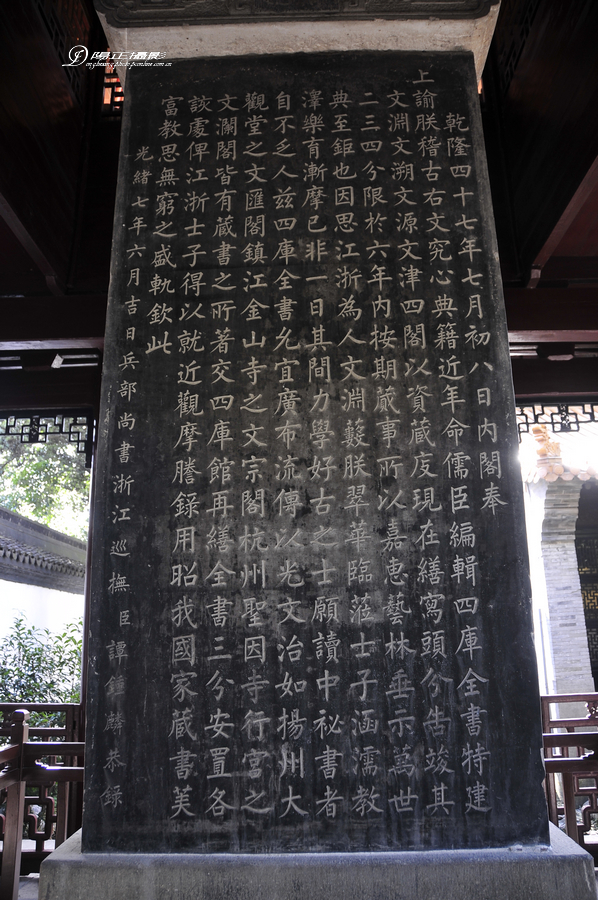 乾隆四十七年七月初八日內閣奉
上諭朕稽古右文究心典籍近年命儒臣編輯四庫全書特建
文淵文溯文源文津四閣以資藏庋現在繕寫頭分告竣其
二三四分限於六年內按期蕆事所以嘉惠藝林垂示萬世
典至鉅也因思江浙為人文淵藪朕翠華臨蒞士子涵濡教
澤樂育漸摩已非一日其間力學好古之士願讀中祕書者
自不乏人茲四庫全書允宜廣布流傳以光文治如揚州大
觀堂之文匯閣鎮江金山寺之文宗閣杭州聖因寺行宮之
文瀾閣皆有藏書之所著交四庫館再繕全書三分安置各
該處俾江浙士子得以就近觀摩謄錄用昭我國家藏書美
富教思無窮之盛軌欽此
光緒七年六月吉日兵部尚書浙江巡撫臣譚鍾麟恭錄
陽正攝影